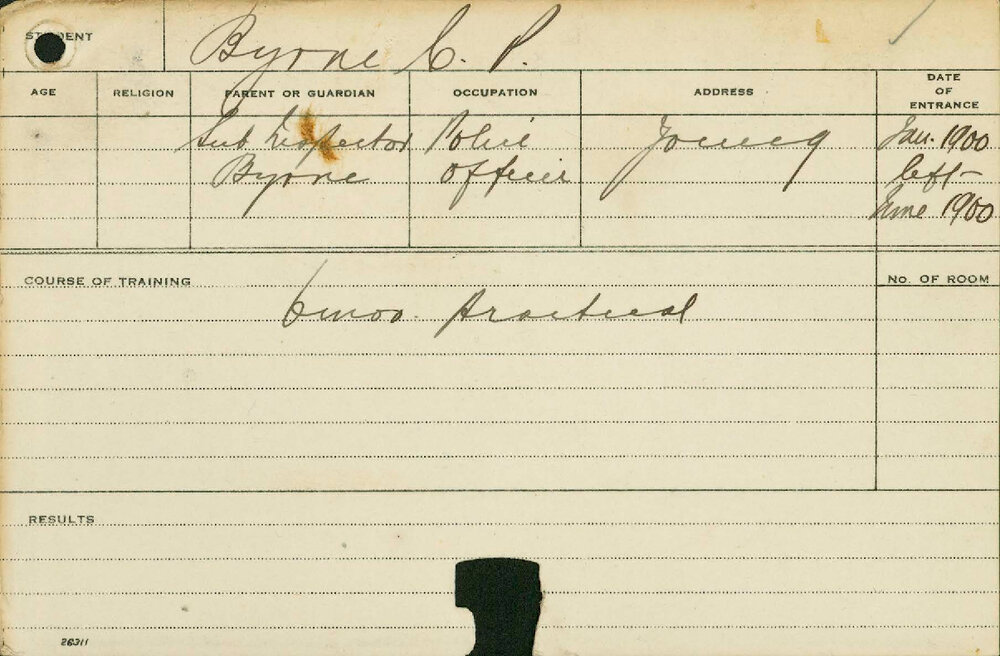 STUDENT Byrne C. P.
AGE RELIGION PARENT OR GUARDIAN OCCUPATION ADDRESS DATE OF ENTRANCE
Sub Inspector Police Young Jan. 1900
Byrne Officer left-
June 1900
COURSE OF TRAINING No. OF ROOM
6 mos. Practical
RESULTS
26311